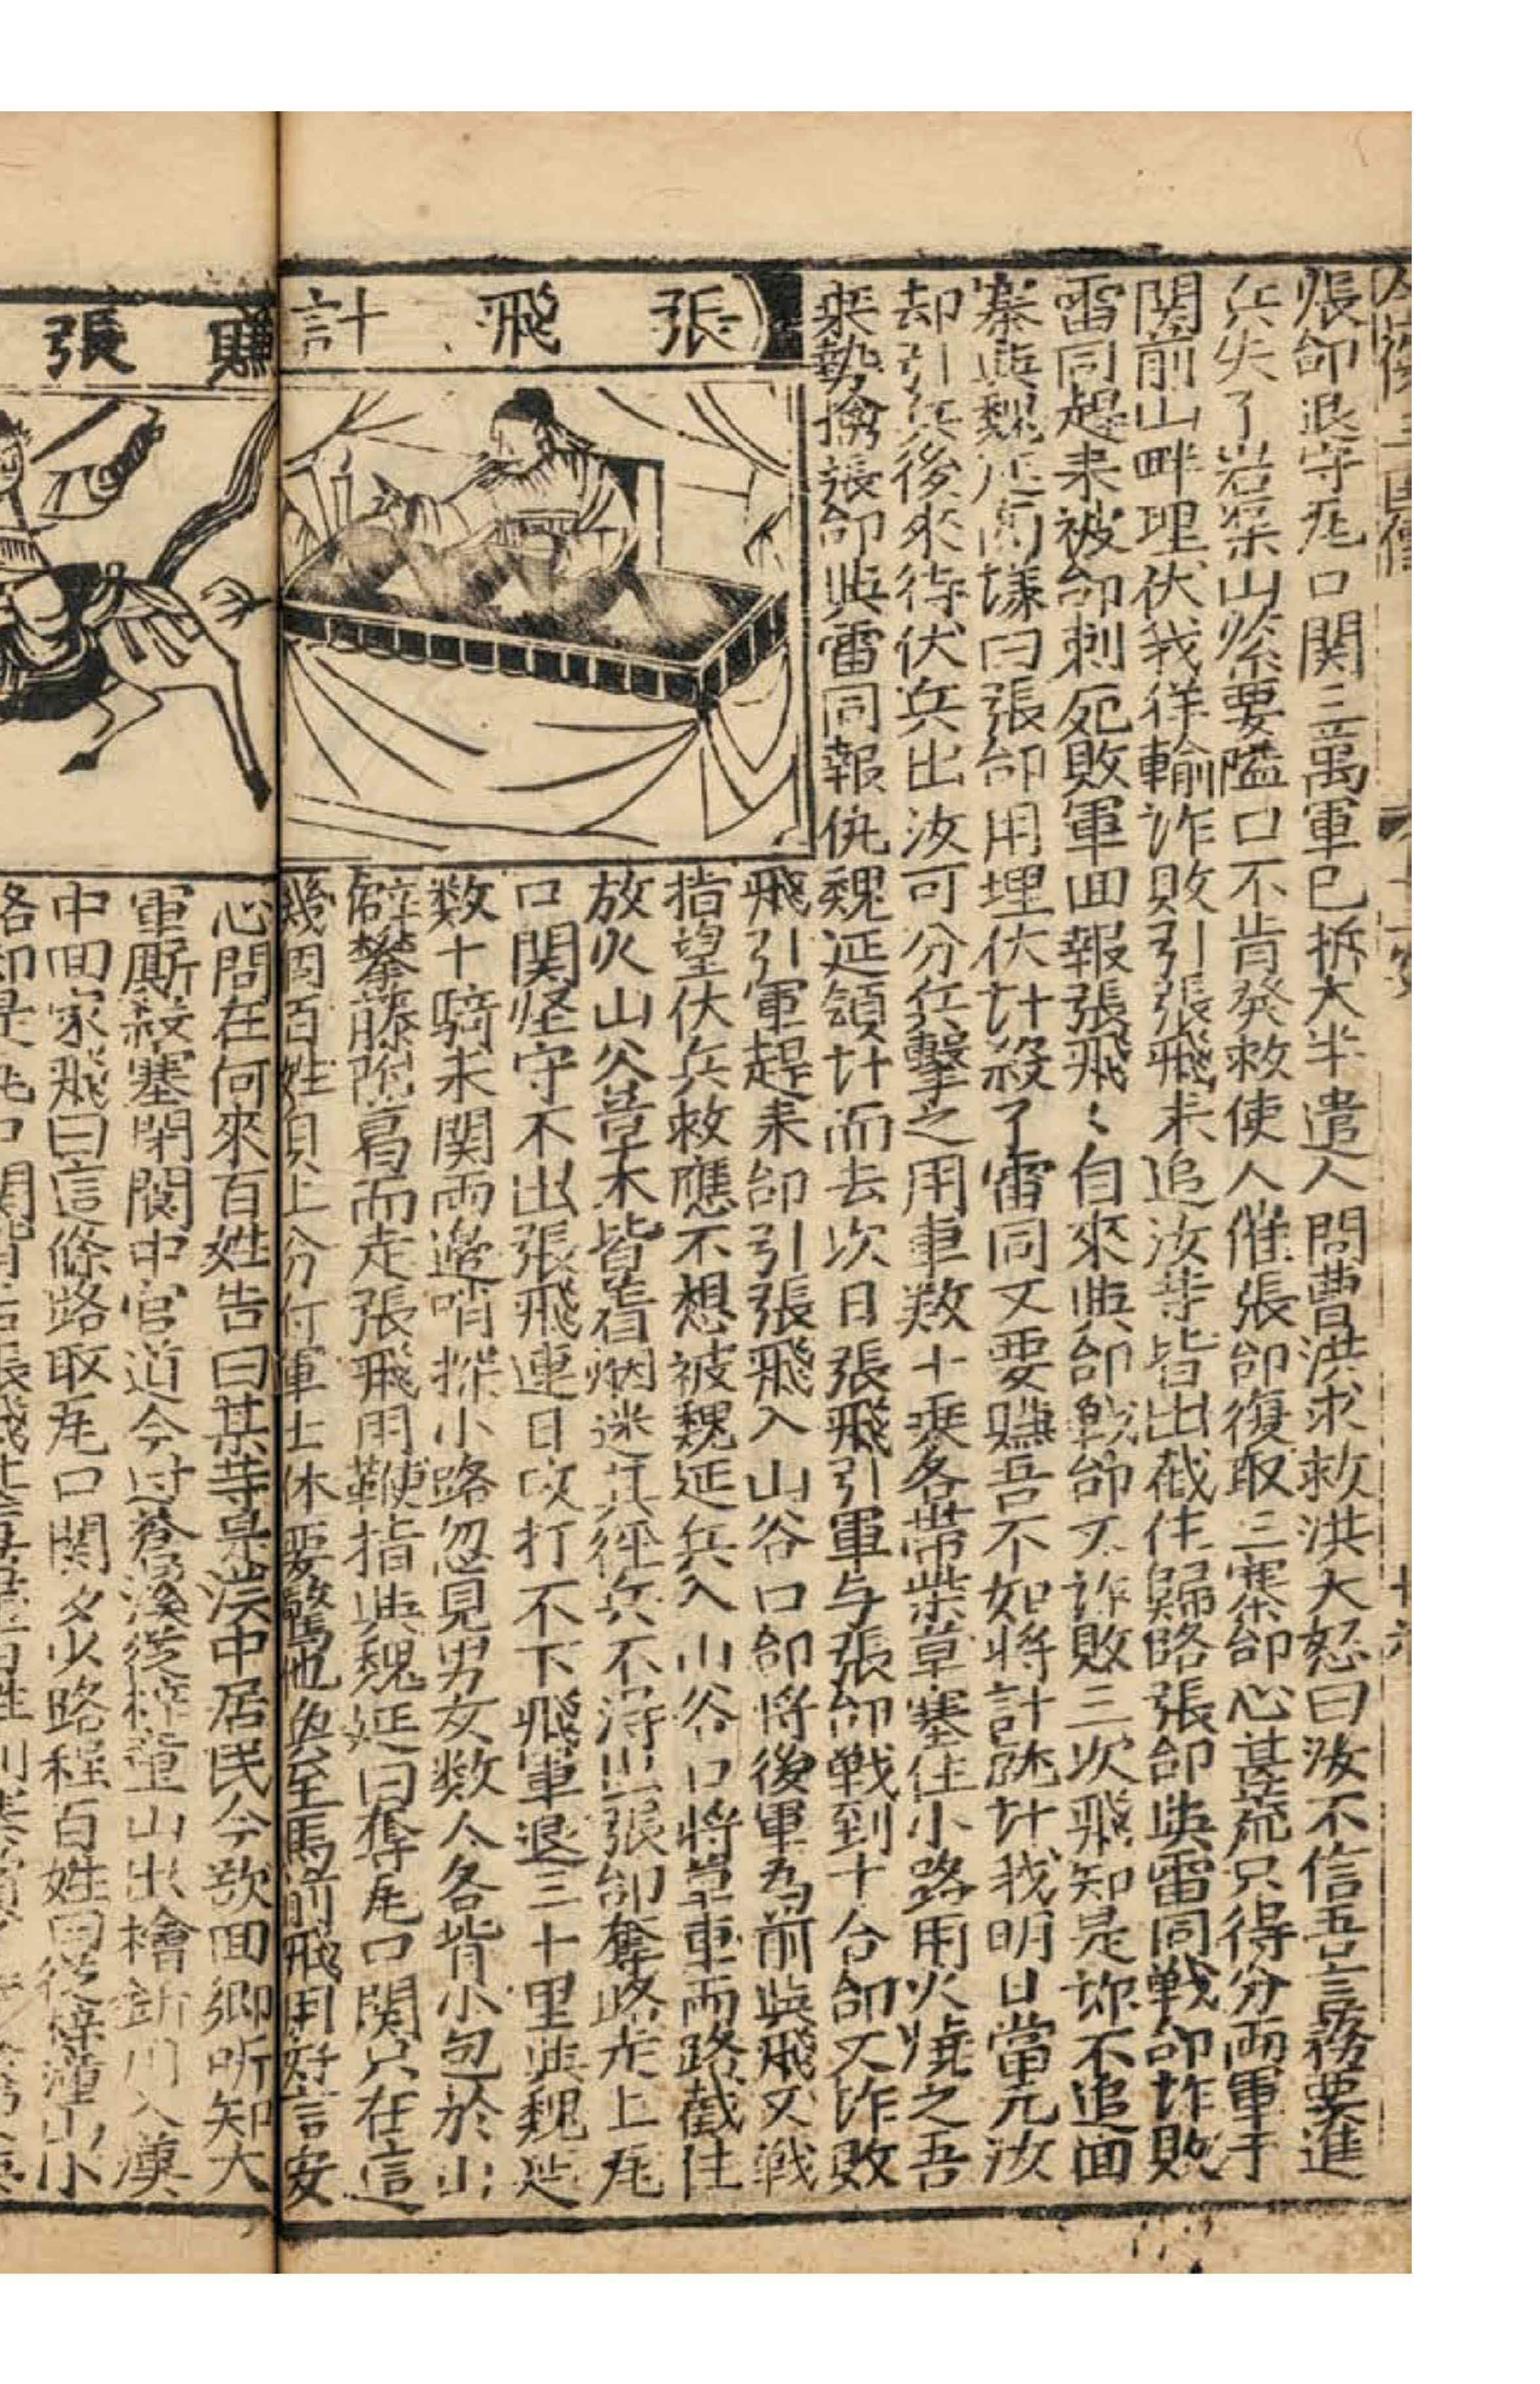 張郃退守瓦口関三萬軍已拆大半遣人問曹洪求救洪大怒曰汝不信吾言務要進
兵失了岩渠山緊要隘口不肯發救使人催張郃復取三寨郃心甚荒只得分両軍于
関前山畔埋伏我佯輸詐敗引張飛来追汝等皆出截住歸路張郃與雷同戦郃詐敗
雷同趕来被郃刺死敗軍回報張飛〻自來與郃戦郃又詐敗三次飛知是詐不追回
寨與魏延商議曰張郃用埋伏計殺了雷同又要賺吾不如将計就計我明日當先汝
却引兵後來待伏兵出汝可分兵擊之用車数十乗各帯柴草塞住小路用火燒之吾
乗勢擒張郃與雷同報仇魏延領計而去次日張飛引軍与張郃戦到十合郃又詐敗
張飛計
飛引軍趕来郃引張飛入山谷口郃将後軍為前與飛又戦
指望伏兵救應不想被魏延兵入山谷口将車両路截住
放火山谷草木皆着烟迷其徑兵不得出張郃奪路走上瓦
口関怪守不出張飛連日攻打不下飛軍退三十里與魏延
数十騎来関両邉哨探小路忽見男女数人各背小包於山
僻攀藤附葛而走張飛用鞭指與魏延曰奪瓦口関只在這
幾個百姓身上分付軍士休要驚他與至馬前飛用好言安
賺張
心問在何來百姓告曰某等是漢中居民今欲回郷听知大
軍厮殺塞閉閬中官道今过蒼溪從梓潼山出檜釿川入漢
中回家飛曰這條路取瓦口関多少路程百姓曰從梓潼山小